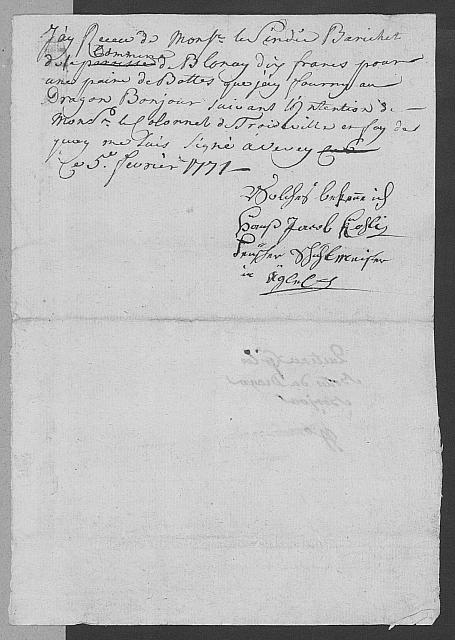 J'ay Receu de Mons.r le Sindic Barichet
Commune
de la paroisse de Blonay dix francs pour
une paire de Bottes que jay fourny au
Dragon Bonjour suivant l'Intention de
Mons.r le Colonnel de Troideville en foy de
quoy me suis signé a vevey
Ce 5.e fevrier 1771
Wolches bekenne ich
Hans Jacob Kohli
Teutscher Schulmeister
in